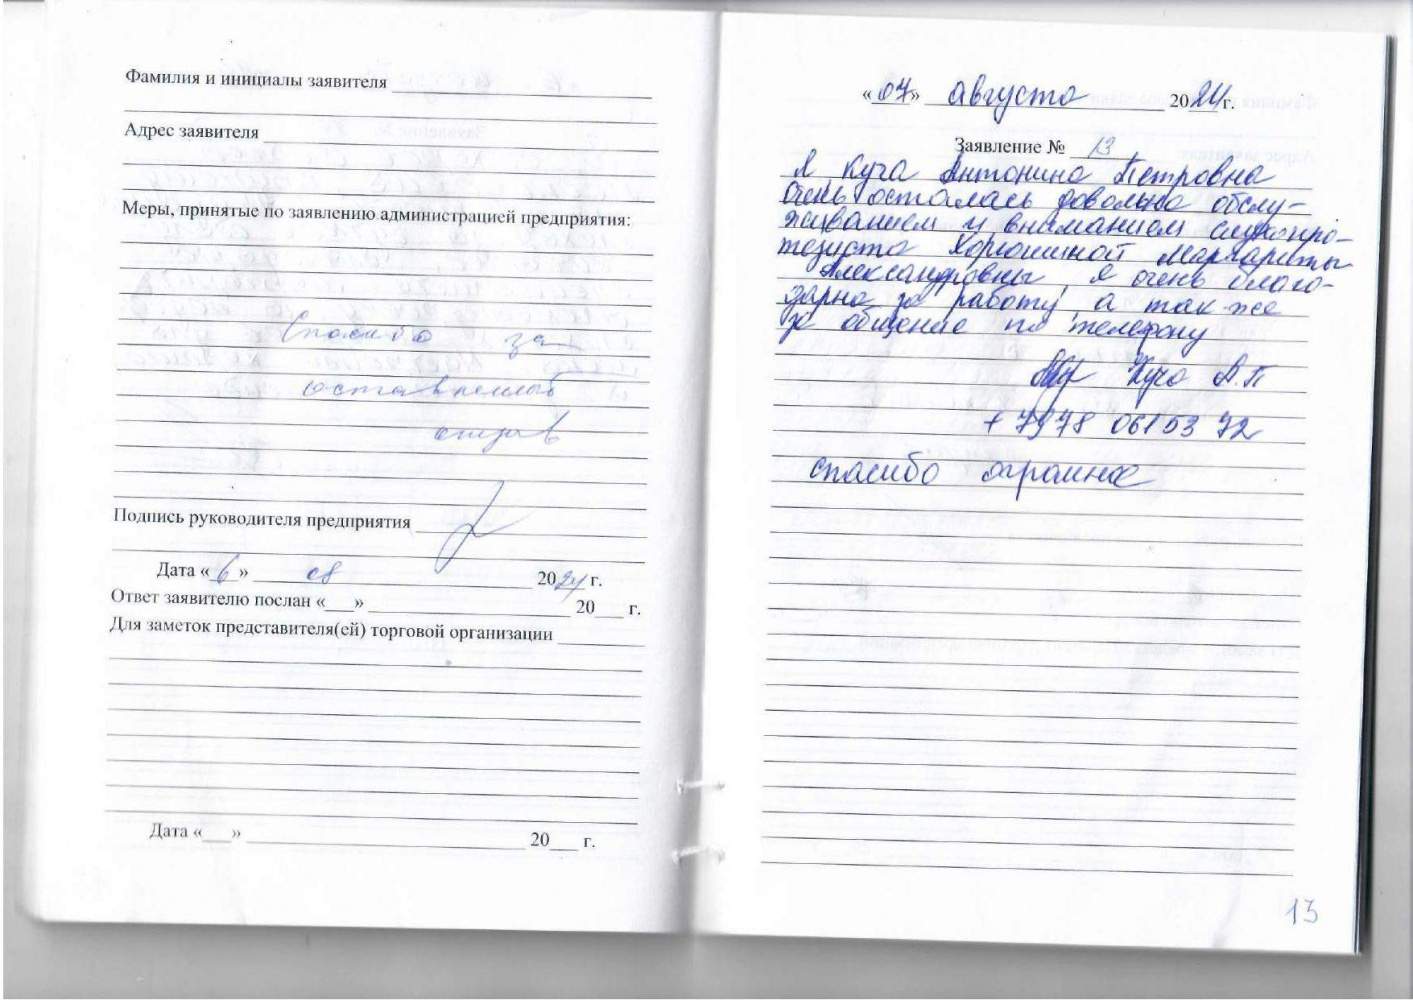 Фамилия и инициалы заявителя
Адрес заявителя
Меры, принятые по заявлению администрацией предприятия:
Спасибо за
оставленный
отзыв
Подпись руководителя предприятия
Дата «6» 08 2024 г.
Ответ заявителю послан «___» 20___ г.
Для заметок представителя(ей) торговой организации
Дата «___» 20___ г.
«07» августа 2024г.
Заявление № 13
Я Куча Антонина Петровна
очень осталась довольна обслу-
живанием и вниманием слухопро-
тезиста Хорюшиной Маргариты
Александровны, я очень благо-
дарна за работу, а так же
за общение по телефону
Куча А.П
+7978 0615372
спасибо огромное
13